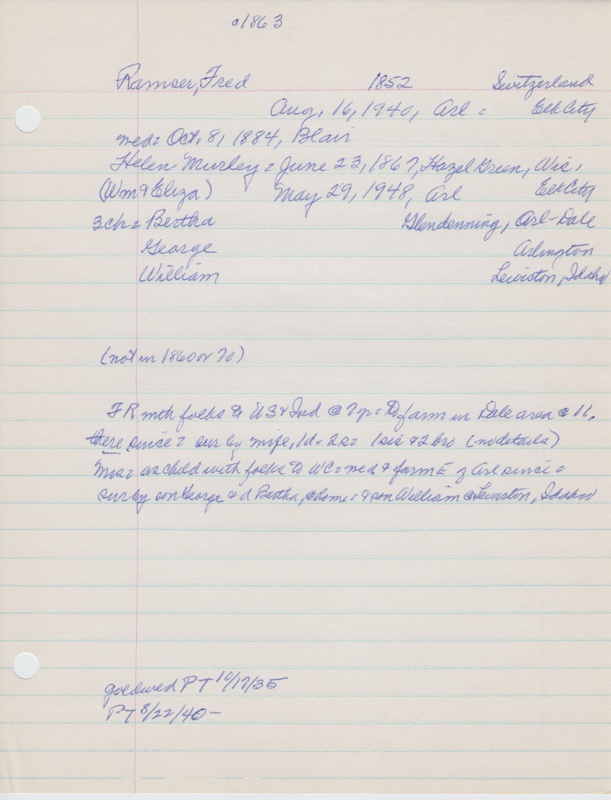 c1863
Ramser, Fred 1852 Switzerland
Aug. 16, 1940, Arl = Elk City
med = Oct. 8, 1884, Blair
Helen Murley = June 23, 1867, Hazel Green, Wis.
(Wm & Eliza) May 29, 1948, Arl Elk City
3ch = Bertha Glendenning, Arl-Dale
George Arlington
William Lewiston, Idaho
(not in 1860 or 70)
FR mth folks to US & Ind @ 7 farm in Dale area @ 16,
there since = sur by wife, 1d - 2s = 1sis & 2bro (no details)
Mrs = as child with folks to WC = med & farm E of Arl since =
sur by son George & d Bertha, @ home = & son William @ Lewiston, Idaho
goldwed PT 10/17/35
PT 8/22/40 -